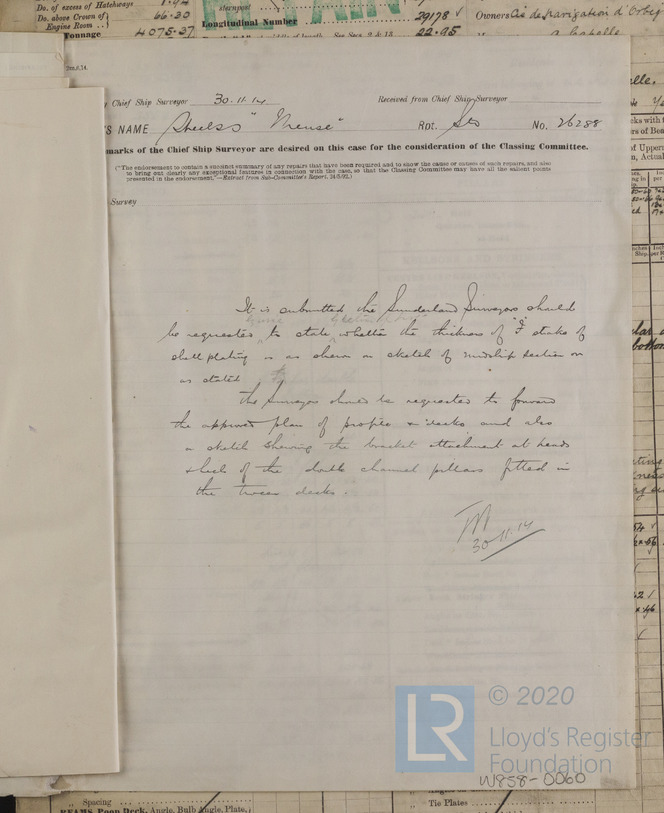 Do. of excess of Hatchways
Do. above Crown of Engine Room
66.30
Tonnage 4075.37
Longitudinal Number
29178
22.95
Owners Cie de Navigation d'Orbigny
Chief Ship Surveyor 30.11.14 Received from Chief Ship Surveyor
'S NAME Steel SS "Meuse" Rpt. Sld No. 26288
marks of the Chief Ship Surveyor are desired on this case for the consideration of the Classing Committee.
("The endorsement to contain a succinct summary of any repairs that have been required and to show the cause or causes of such repairs, and also
to bring out clearly any exceptional features in connection with the case, so that the Classing Committee may have all the salient points
presented in the endorsement."—Extract from Sub-Committee's Report, 24/5/92.)
Survey
It is submitted the Sunderland Surveyors should
be requested to state whether the thickness of F strake of
shell plating is as shown on sketch of midship section or
as stated
The Surveyors should be requested to forward
the approved plan of profile & decks and also
a sketch shewing the bracket attachment at heads
& heels of the double channel pillars fitted in
the tween decks.
30.11.14
LR
© 2020
Lloyd's Register
Foundation
W858-0060
Spacing
BEAMS, Poop Deck, Angle, Bulb Angle, Plate,
Tie Plates